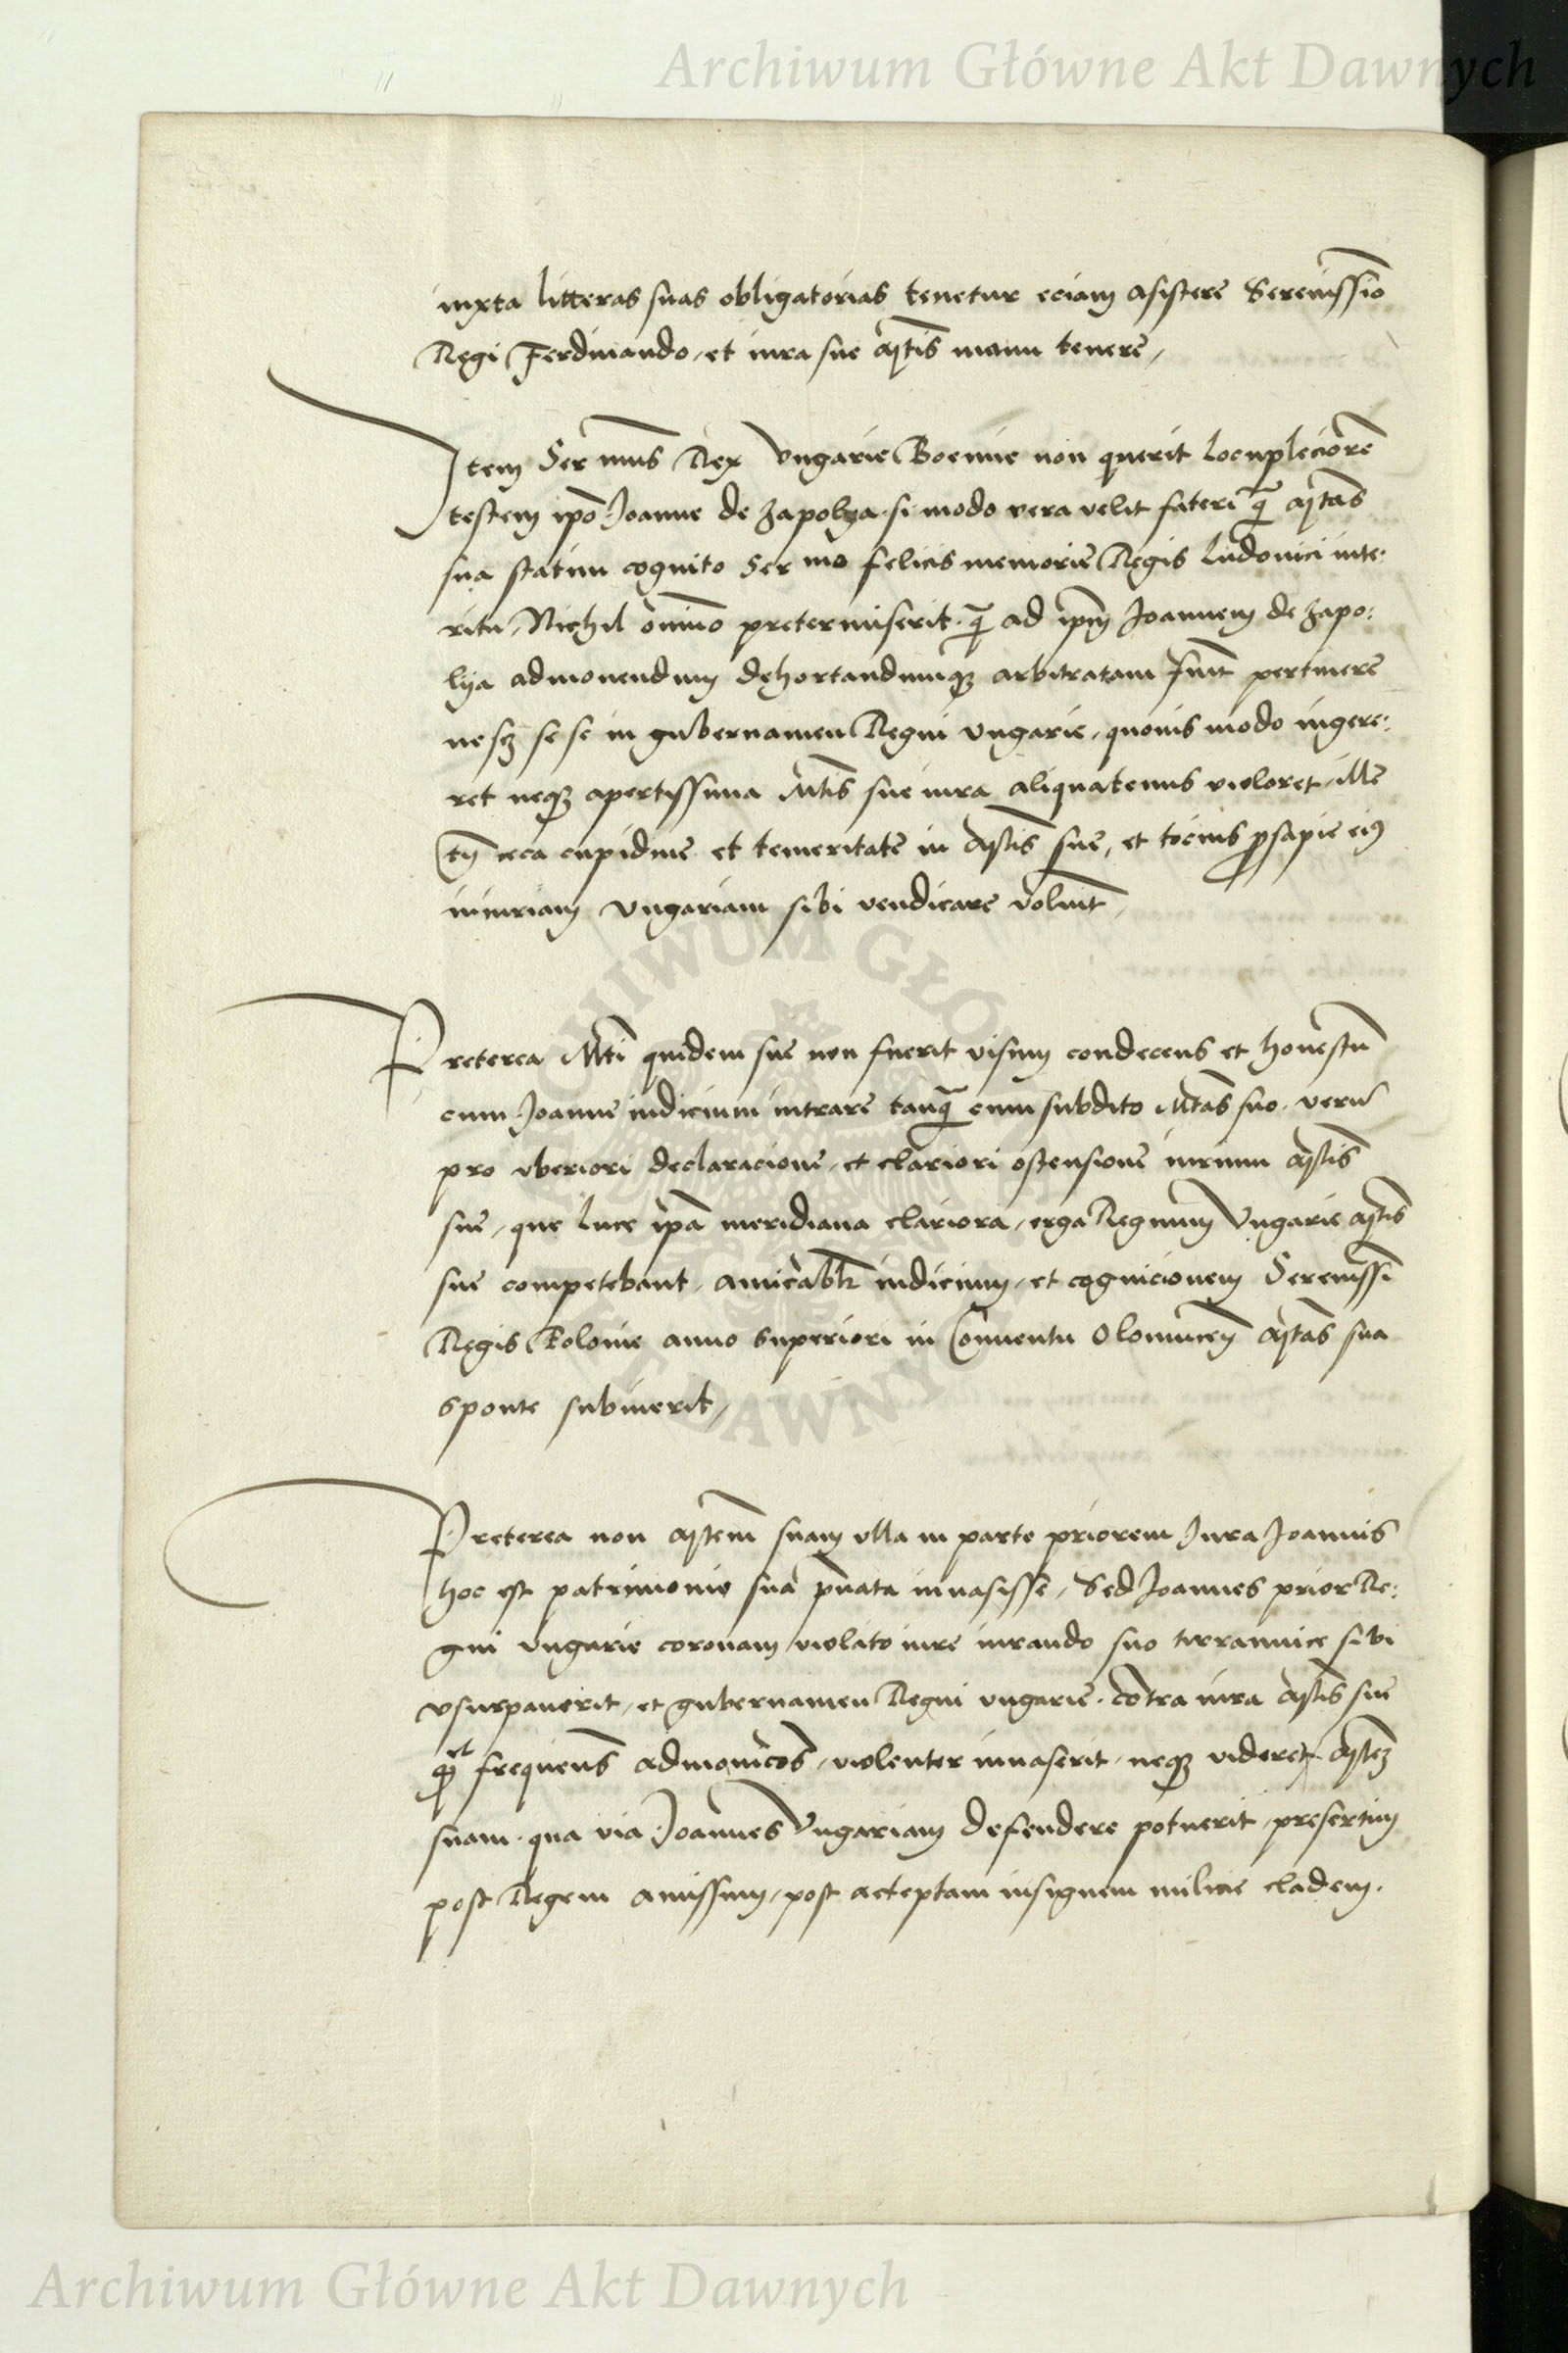 Archiwum Główne Akt Dawnych
iuxta litteras suas obligatorias tenetur eciam asistere Serenissio
Regi Ferdinando, et iura sue Mtis manu tenere,
Item Ser mus Rex Ungarie Boemie non querit locupleciore
testem ipo Joanne de Zapolya. si modo vera velit fateri q Mtas
sua statim cognito Ser mo felicis memorie Regis Ludouici inte:
ritu, Nichil omnio pretermiserit. q ad ipm Joannem de Zapo:
lya admonendum dehortandumq arbitratam fuit pertinere
ne sz se se in gubernamen Regni Ungarie, quouis modo ingere:
ret neq apertissima Mtis sue iura aliquatenus violaret, ille
tn ceca cupidine et temeritate in Mtis sue, et tocius psapie eius
iniuriam Ungariam sibi vendicare voluit,
Preterea Mti quidem sue non fuerit visum condecens et honestu
cum Joanne iudicium intrare tanq cum subdito Mtas suo. veru
pro vberiori declaracione, et clariori ostensione iurium Mtis
sue, que luce ipa meridiana clariora, erga Regnum Ungarie Mtis
sue competebant, amicabile iudicium, et cognicionem Serenissi
Regis Polonie anno superiori in Conuentu Olomucen Mtas sua
sponte subiuerit,
Preterea non Mtem suam vlla in parte priorem Jura Joannis
hoc est patrimonio sua puata inuasisse, Sed Joannes prior Re:
gni Ungarie coronam violato iure iurando suo tirannice sibi
vsurpauerit, et gubernamen Regni Ungarie. contra iura Mtis sue
et frequens admonicos, violenter inuaserit, neq videret Mtem
suam. qua via Joannes Ungariam defendere potuerit, presertim
post Regem amissum, post acceptam insignem milicie cladem.
Archiwum Główne Akt Dawnych